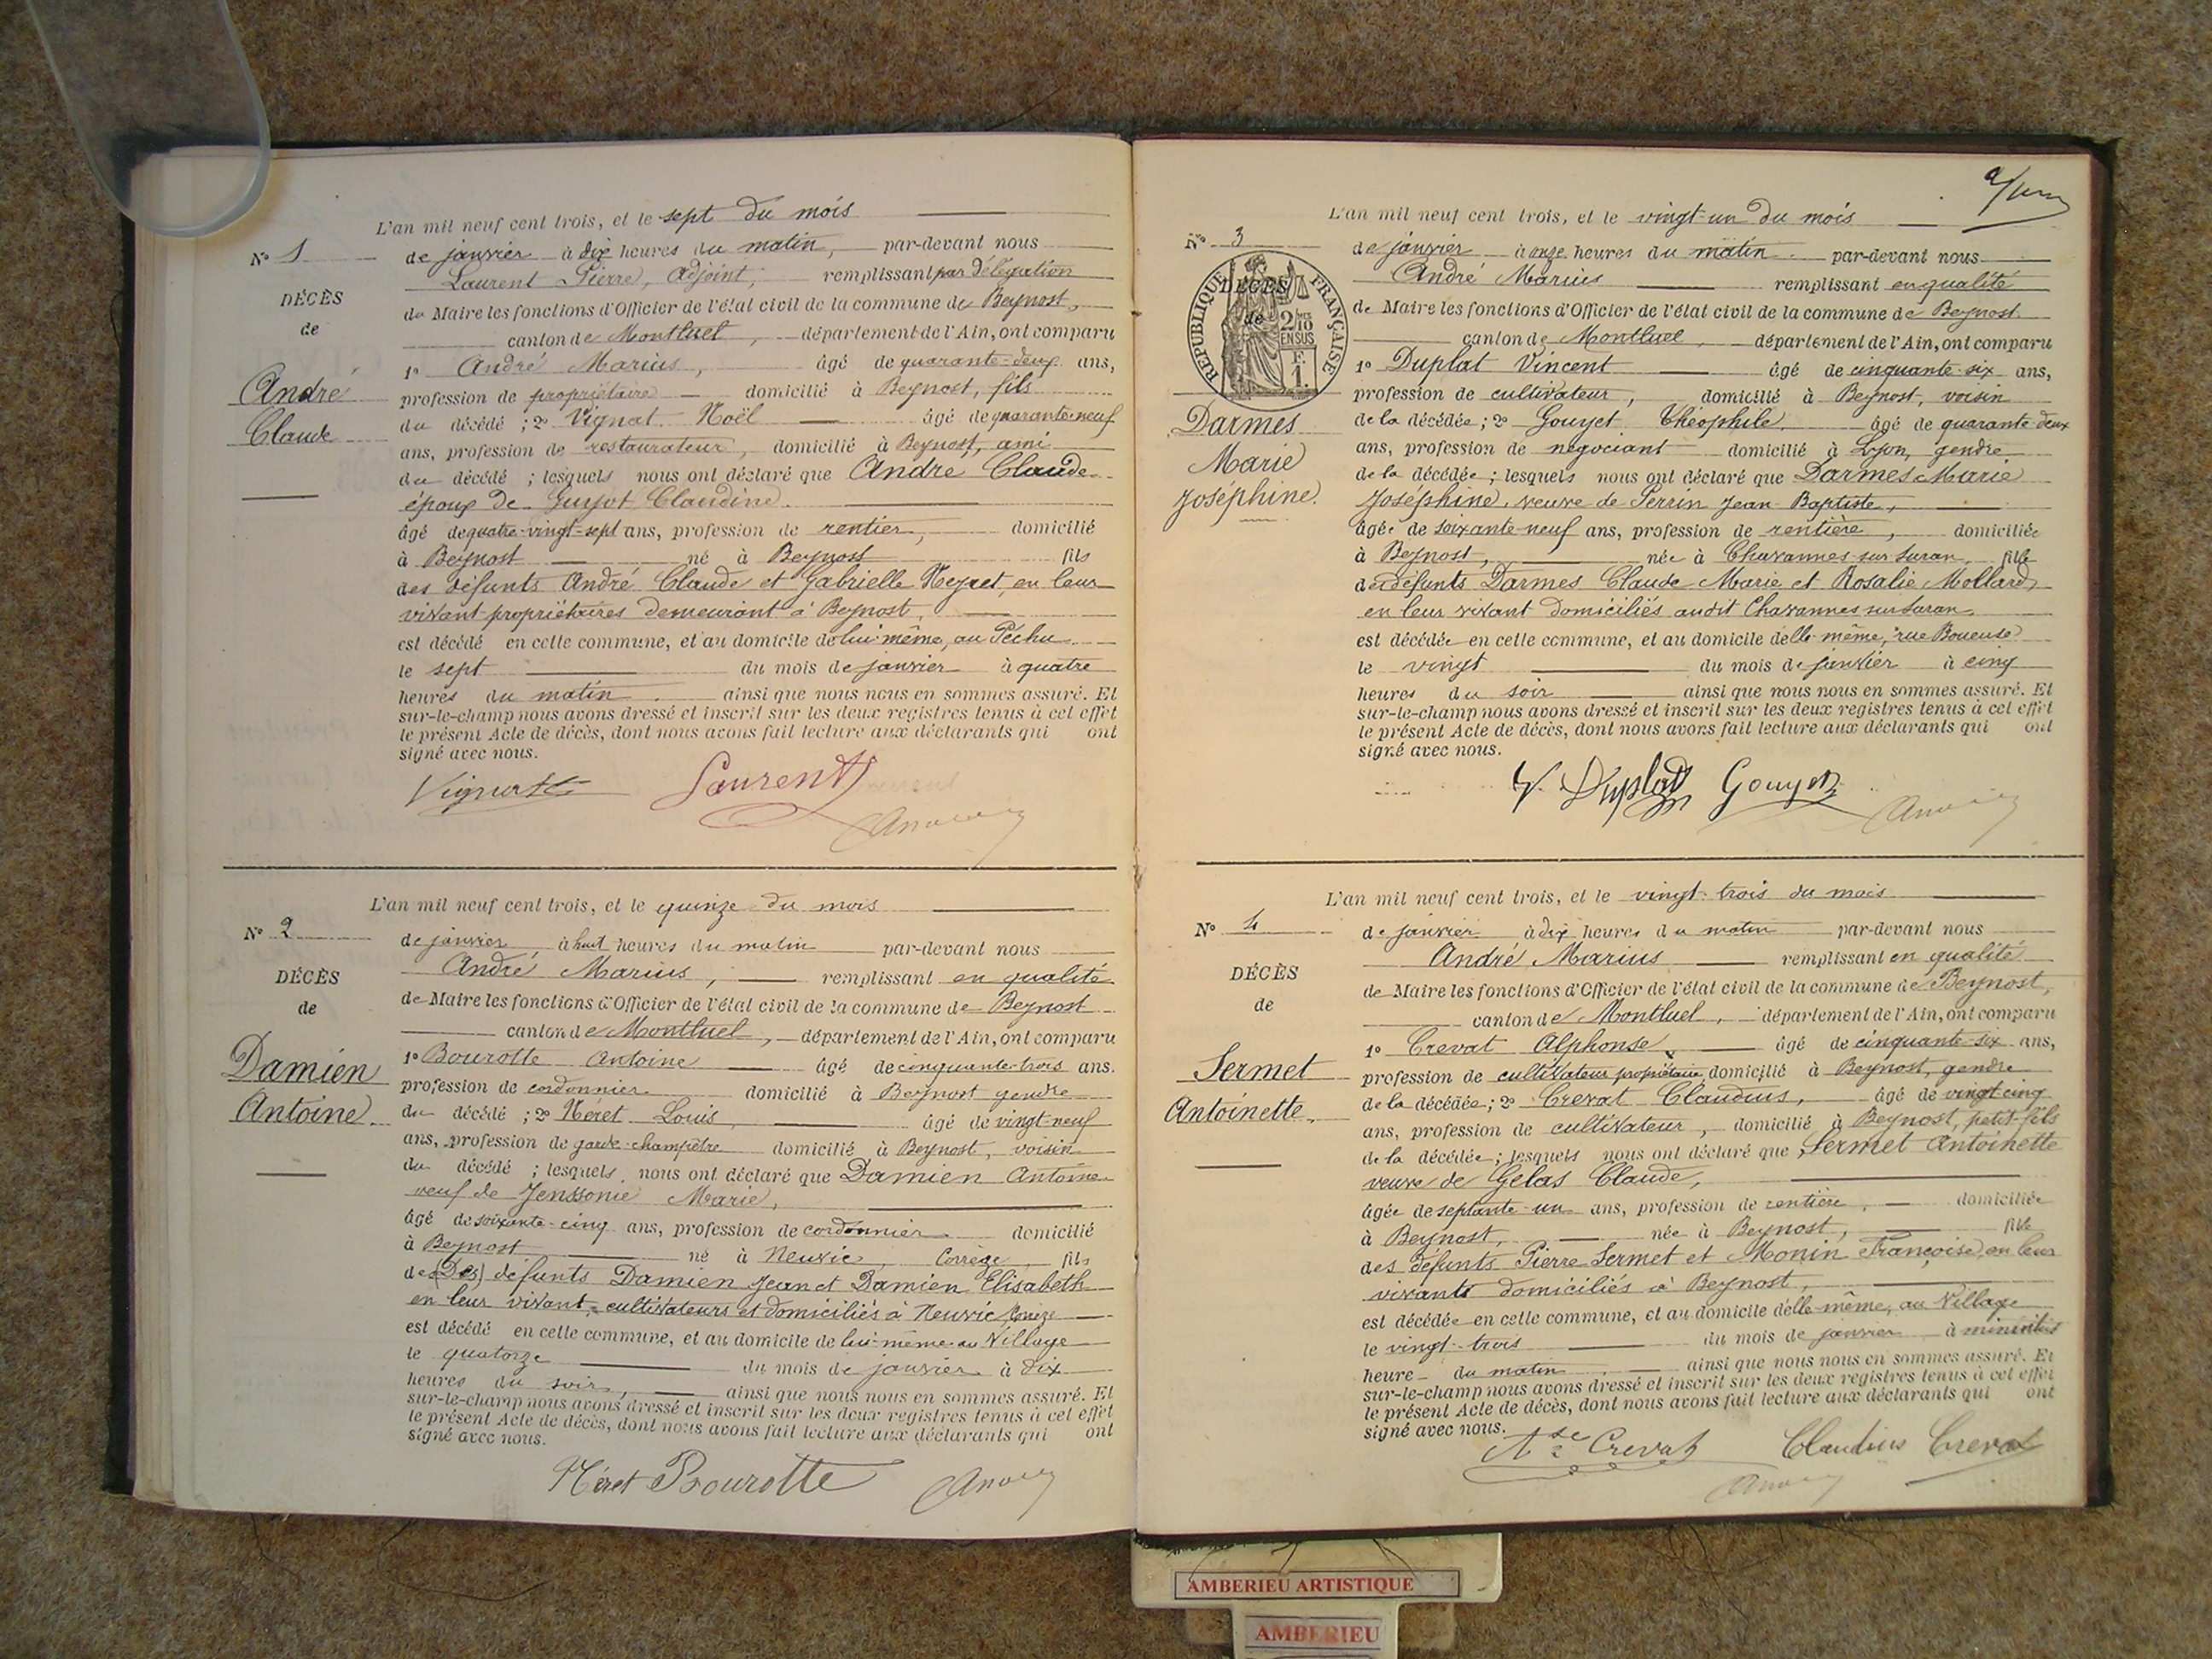 L'an mil neuf cent trois, et le sept du mois
N° 1
de janvier à dix heures du matin, par-devant nous
Laurent Pierre, Adjoint, remplissant par délégation
DÉCÈS
du Maire les fonctions d'Officier de l'état civil de la commune de Beynost,
de
canton de Montluel, département de l'Ain, ont comparu
1° André Marius, âgé de quarante-deux ans,
André
profession de propriétaire domicilié à Beynost, fils
Claude
du décédé ; 2° Vignat Noël âgé de quarante-neuf
ans, profession de restaurateur, domicilié à Beynost, ami
du décédé ; lesquels nous ont déclaré que André Claude
époux de Guyot Claudine
âgé de quatre-vingt-sept ans, profession de rentier, domicilié
à Beynost né à Beynost fils
des défunts André Claude et Gabrielle Neyret, en leur
vivant propriétaires demeurant à Beynost,
est décédé en cette commune, et au domicile de lui-même, au Péchu
le sept du mois de janvier à quatre
heures du matin ainsi que nous nous en sommes assuré. Et
sur-le-champ nous avons dressé et inscrit sur les deux registres tenus à cet effet
le présent Acte de décès, dont nous avons fait lecture aux déclarants qui ont
signé avec nous.
Vignat Laurent
L'an mil neuf cent trois, et le quinze du mois
N° 2
de janvier à huit heures du matin par-devant nous
André Marius, remplissant en qualité
DÉCÈS
de Maire les fonctions d'Officier de l'état civil de la commune de Beynost
de
canton de Montluel, département de l'Ain, ont comparu
1° Bourotte Antoine âgé de cinquante-trois ans.
Damien
profession de cordonnier domicilié à Beynost gendre
Antoine
du décédé ; 2° Néret Louis, âgé de vingt-neuf
ans, profession de garde-champêtre domicilié à Beynost, voisin
du décédé ; lesquels nous ont déclaré que Damien Antoine
veuf de Marie,
âgé de soixante-cinq ans, profession de cordonnier domicilié
à Beynost né à Neuvic, Corrèze, fils
des (Des) défunts Damien Jean et Damien Elisabeth
en leur vivant, cultivateurs et domiciliés à Neuvic
est décédé en cette commune, et au domicile de lui-même au Village
le quatorze du mois de janvier à dix
heures du soir, ainsi que nous nous en sommes assuré. Et
sur-le-champ nous avons dressé et inscrit sur les deux registres tenus à cet effet
le présent Acte de décès, dont nous avons fait lecture aux déclarants qui ont
signé avec nous.
Néret Bourotte
L'an mil neuf cent trois, et le vingt-un du mois
N° 3
de janvier à onze heures du matin par-devant nous
André Marius remplissant en qualité
RÉPUBLIQUE FRANÇAISE
2/10 EN SUS
F. 1.
DÉCÈS
de Maire les fonctions d'Officier de l'état civil de la commune de Beynost
de
canton de Montluel, département de l'Ain, ont comparu
1° Duplat Vincent âgé de cinquante-six ans,
profession de cultivateur, domicilié à Beynost, voisin
Darmes
de la décédée ; 2° Gouyet Théophile âgé de quarante-deux
ans, profession de négociant domicilié à Lyon, gendre
Marie
de la décédée ; lesquels nous ont déclaré que Darmes Marie
Joséphine
Joséphine, veuve de Perrin Jean Baptiste,
âgée de soixante-neuf ans, profession de rentière, domiciliée
à Beynost, née à Chavannes-sur-Suran, fille
des défunts Darmes Claude Marie et Rosalie Mollard,
en leur vivant domiciliés audit Chavannes sur Suran
est décédée en cette commune, et au domicile d'elle-même, rue Boueuse
le vingt du mois de janvier à cinq
heures du soir ainsi que nous nous en sommes assuré. Et
sur-le-champ nous avons dressé et inscrit sur les deux registres tenus à cet effet
le présent Acte de décès, dont nous avons fait lecture aux déclarants qui ont
signé avec nous.
V. Duplat Gouyet
L'an mil neuf cent trois, et le vingt-trois du mois
N° 4
de janvier à dix heures du matin par-devant nous
André Marius remplissant en qualité
DÉCÈS
de Maire les fonctions d'Officier de l'état civil de la commune de Beynost,
de
canton de Montluel, département de l'Ain, ont comparu
1° Crevat Alphonse, âgé de cinquante-six ans,
Sermet
profession de cultivateur propriétaire domicilié à Beynost, gendre
Antoinette
de la décédée ; 2° Crevat Claudius, âgé de vingt-cinq
ans, profession de cultivateur, domicilié à Beynost, petit-fils
de la décédée ; lesquels nous ont déclaré que Sermet Antoinette
veuve de Gelas Claude,
âgée de septante-un ans, profession de rentière, domiciliée
à Beynost, née à Beynost, fille
des défunts Pierre Sermet et Monin Françoise, en leur
vivants domiciliés à Beynost,
est décédée en cette commune, et au domicile d'elle-même, au Village
le vingt-trois du mois de janvier à
heure du matin ainsi que nous nous en sommes assuré. Et
sur-le-champ nous avons dressé et inscrit sur les deux registres tenus à cet effet
le présent Acte de décès, dont nous avons fait lecture aux déclarants qui ont
signé avec nous.
Ase Crevat Claudius Crevat
AMBERIEU ARTISTIQUE
AMBERIEU